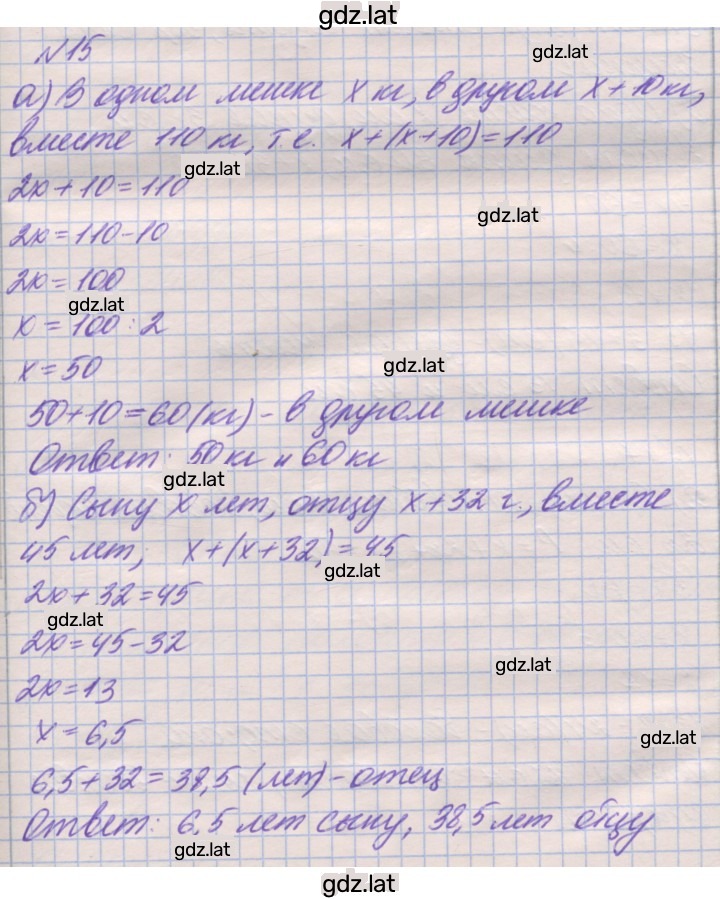 gdz.lat
N 15
gdz.lat
а) В одном мешке x кг, в другом x+10 кг,
вместе 110 кг, т.е. x+(x+10)=110
gdz.lat
2x+10=110
gdz.lat
2x=110-10
2x=100
gdz.lat
x=100:2
x=50
gdz.lat
50+10=60(кг)-в другом мешке
Ответ: 50кг и 60кг
gdz.lat
б) Сыну x лет, отцу x+32 г., вместе
45 лет, x+(x+32)=45
gdz.lat
2x+32=45
gdz.lat
2x=45-32
gdz.lat
2x=13
x=6,5
gdz.lat
6,5+32=38,5 (лет)-отец
Ответ: 6,5 лет сыну, 38,5 лет отцу
gdz.lat
gdz.lat